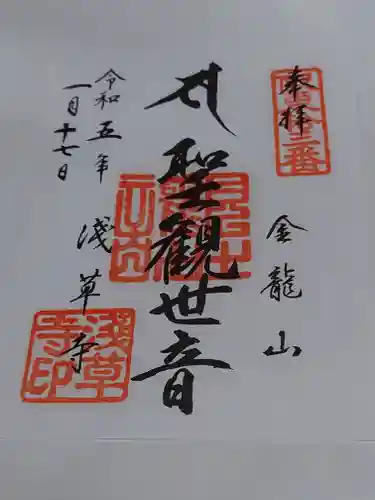 奉拝
金龍山
聖観世音
浅草寺
令和五年
一月十七日
浅草
寺印